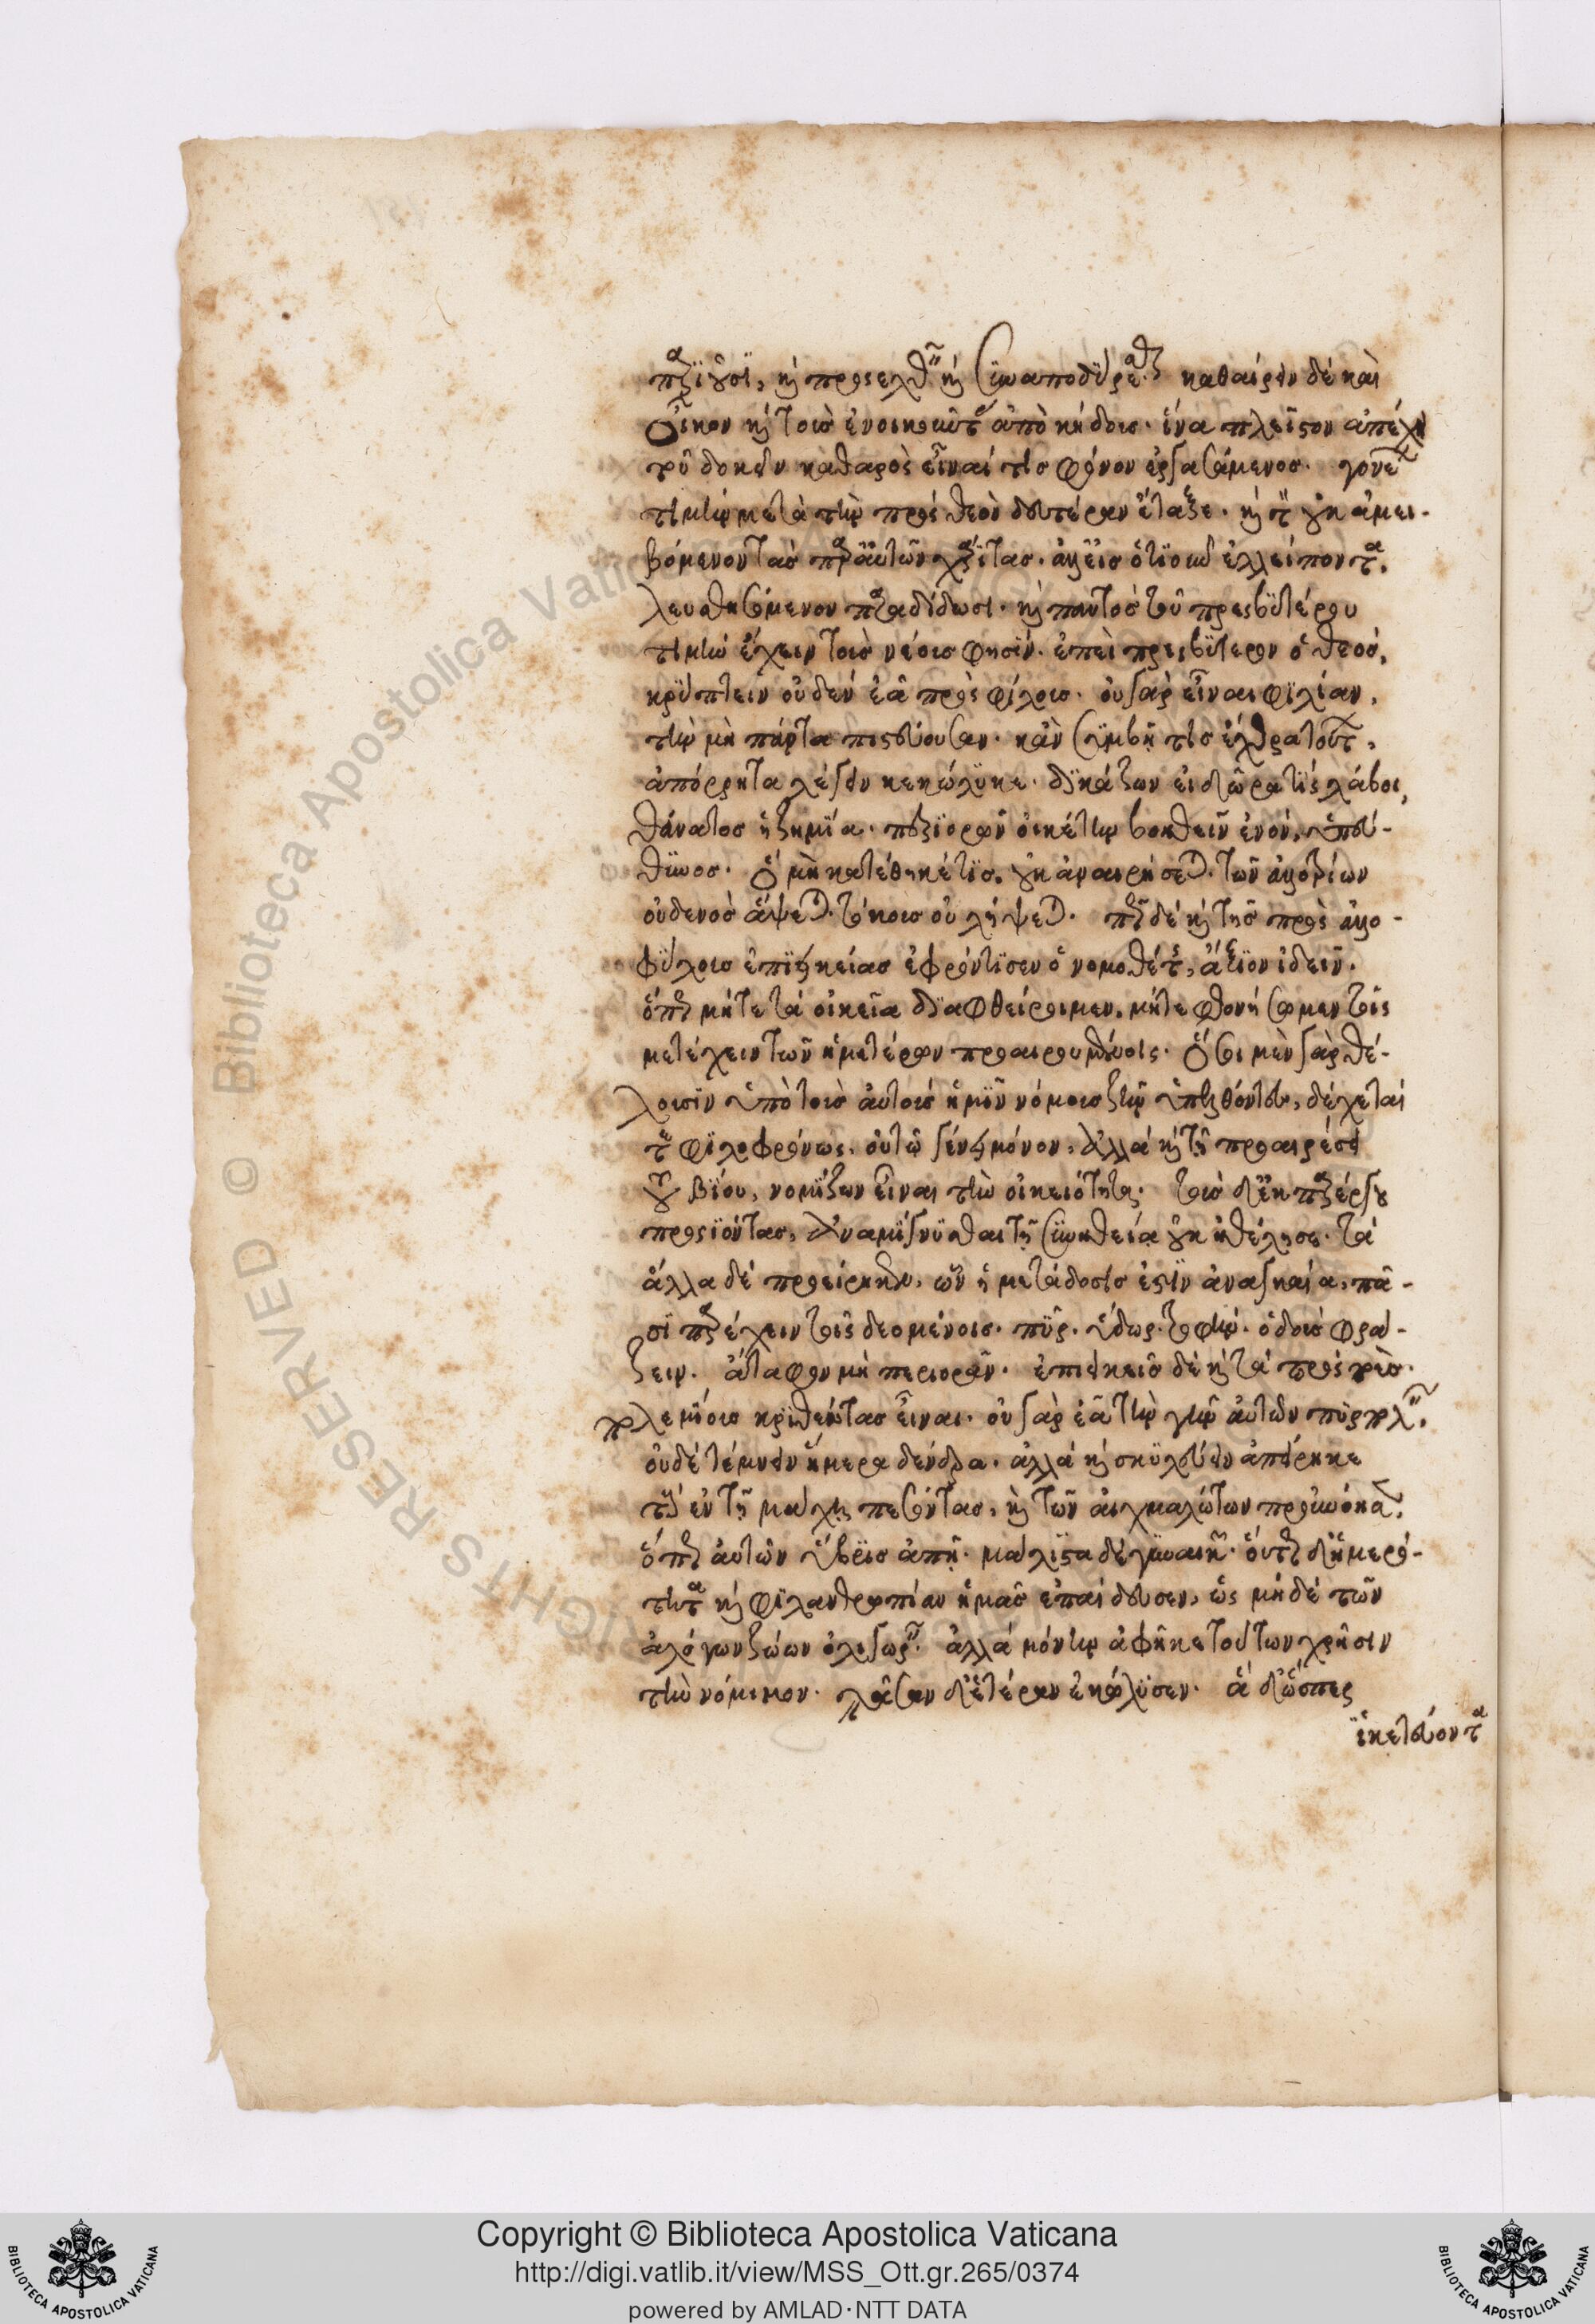 παριοῦσι, καὶ προσελθεῖν καὶ συναποδύρασθαι. καθαίρειν δὲ καὶ
οἶκον καὶ τοὺς ἐνοικοῦντας ἀπὸ κήδους. ἵνα πλεῖστον ἀπέχῃ
τοῦ δοκεῖν καθαρὸς εἶναί τις φόνον ἐργασάμενος. γονέων
τιμὴν μετὰ τὴν πρὸς θεὸν δευτέραν ἔταξε. καὶ τὸν οὐκ ἀμει-
βόμενον τὰς παρ' αὐτῶν χάριτας. ἀλλ' εἰς ὁτιοῦν ἐλλείποντα,
λευσθησόμενον παραδίδωσι. καὶ παντὸς τοῦ πρεσβυτέρου
τιμὴν ἔχειν τοὺς νέους φησίν. ἐπεὶ πρεσβύτερον ὁ θεός,
κρύπτειν οὐδὲν ἐᾷ πρὸς φίλους. οὐ γὰρ εἶναι φιλίαν,
τὴν μὴ πάντα πιστεύουσαν. κἂν συμβῇ τις ἔχθρα τούτων,
ἀπόρρητα λέγειν κεκώλυκε. δικάζων εἰ δῶρά τις λάβοι,
θάνατος ἡ ζημία. περιορῶν ἱκέτην βοηθεῖν ἐνόν, ὑπεύ-
θυνος. ὃ μὴ κατέθηκέ τις, οὐκ ἀναιρήσεται. τῶν ἀλλοτρίων
οὐδενὸς ἅψεται. τόκους οὐ λήψεται. πῶς δὲ καὶ τῆς πρὸς ἀλλο-
φύλους ἐπιεικείας ἐφρόντισεν ὁ νομοθέτης, ἄξιον ἰδεῖν.
ὅπως μήτε τὰ οἰκεῖα διαφθείρωμεν, μήτε φθονήσωμεν τοῖς
μετέχειν τῶν ἡμετέρων προαιρουμένοις. ὅσοι μὲν γὰρ θέ-
λουσιν ὑπὸ τοὺς αὐτοὺς ἡμῖν νόμους ζῆν ὑπελθόντες, δέχεται
τε φιλοφρόνως. οὐ τῷ γένει μόνον, ἀλλὰ καὶ τῇ προαιρέσει
τοῦ βίου, νομίζων εἶναι τὴν οἰκειότητα. τοὺς δ' ἐκ παρέργου
προσιόντας, ἀναμίγνυσθαι τῇ συνηθείᾳ οὐκ ἠθέλησε. τὰ
ἄλλα δὲ προείρηκεν, ὧν ἡ μετάδοσίς ἐστιν ἀναγκαία. πᾶ-
σι παρέχειν τοῖς δεομένοις. πῦρ. ὕδωρ. τροφήν. ὁδοὺς φρά-
ζειν. ἄταφον μὴ περιορᾶν. ἐπιεικεῖς δὲ καὶ τὰ πρὸς τοὺς
πολεμίους κριθέντας εἶναι. οὐ γὰρ ἐᾷ τὴν γῆν αὐτῶν πυρπολεῖν,
οὐδὲ τέμνειν ἥμερα δένδρα. ἀλλὰ καὶ σκυλεύειν ἀπείρηκε
τοὺς ἐν τῇ μάχῃ πεσόντας, καὶ τῶν αἰχμαλώτων προὐνόησε,
ὅπως αὐτῶν ὕβρις ἀπῇ. μάλιστα δὲ γυναικῶν. οὕτως δ' ἡμερό-
τητα καὶ φιλανθρωπίαν ἡμᾶς ἐπαίδευσεν, ὡς μηδὲ τῶν
ἀλόγων ζώων ὀλιγωρεῖν. ἀλλὰ μόνην ἀφῆκε τούτων χρῆσιν
τὴν νόμιμον. πᾶσαν δ' ἑτέραν ἐκώλυσεν. ἃ δ' ὥσπερ
ἱκετεύοντα
Copyright © Biblioteca Apostolica Vaticana
http://digi.vatlib.it/view/MSS_Ott.gr.265/0374
powered by AMLAD·NTT DATA